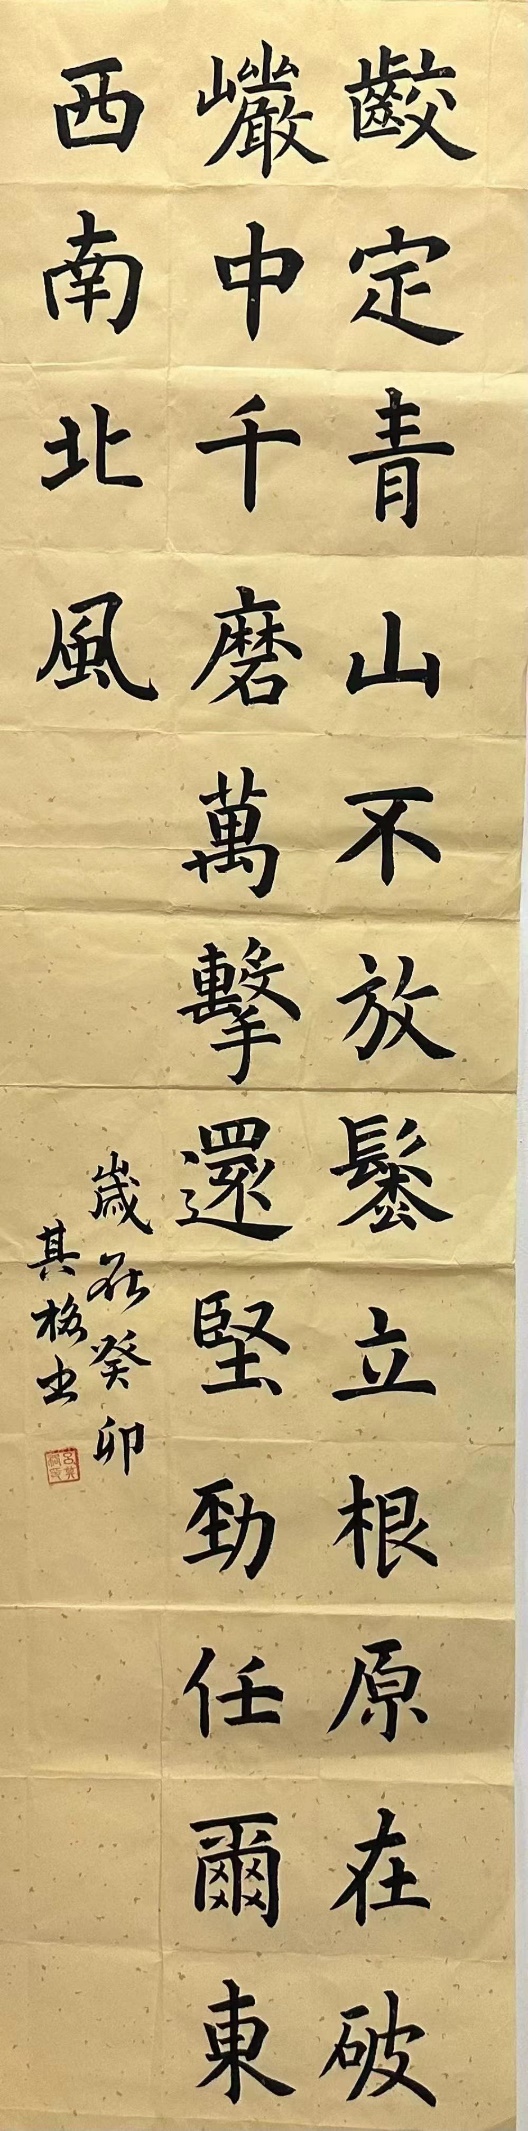 齩定青山不放鬆立根原在破
巖中千磨萬擊還堅勁任爾東
西南北風
歲在癸卯
其格书